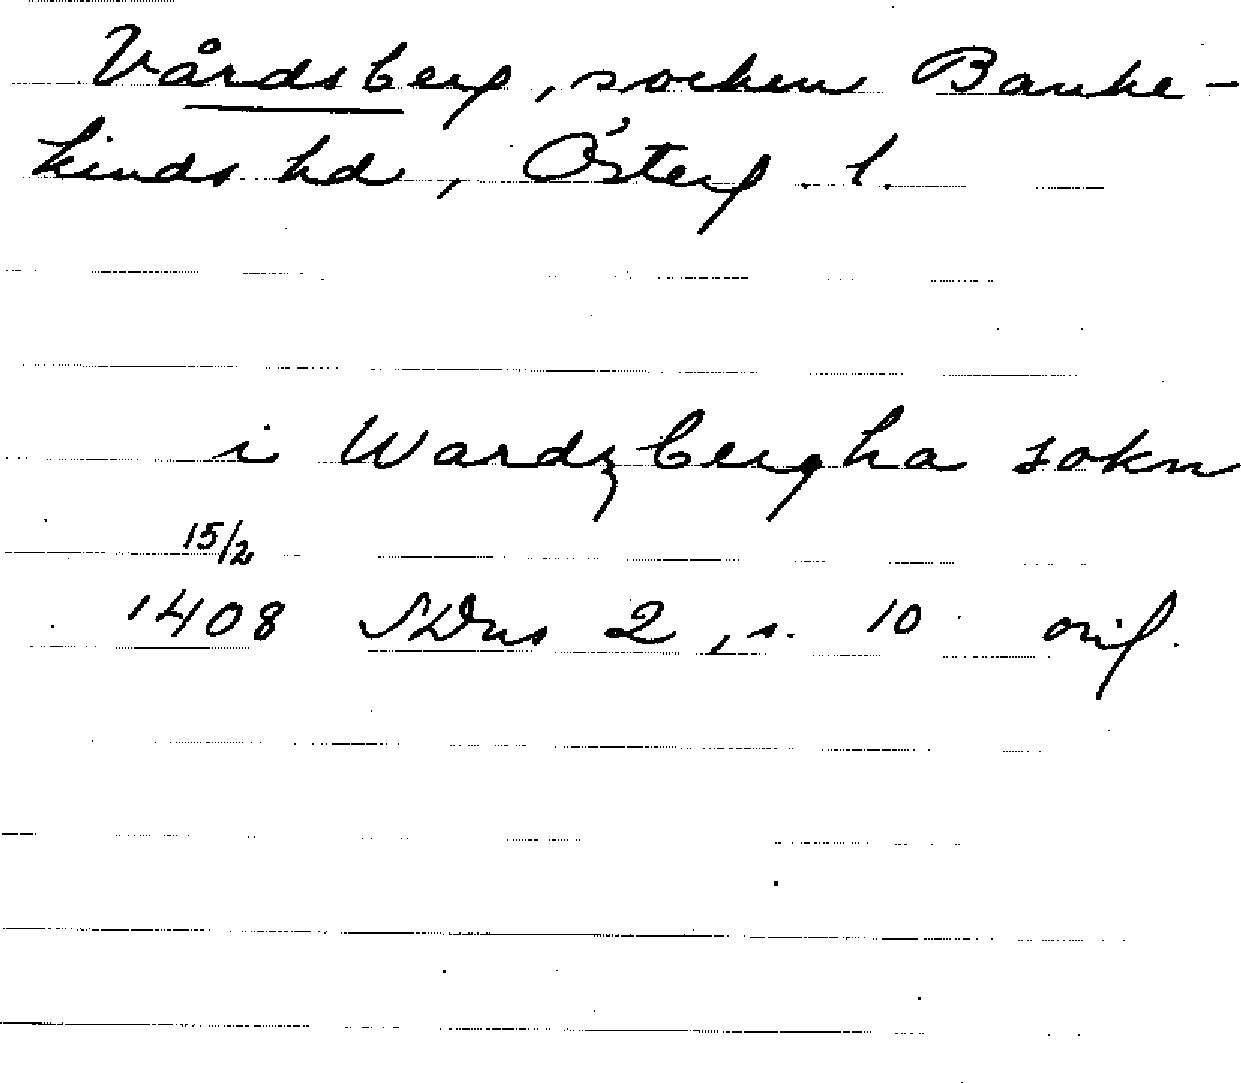 Vårdsberg, socken Banke-
kinds hd, Österg. l.
i Wardzbergha sokn
15/2
1408 SDns 2, s. 10 orig.